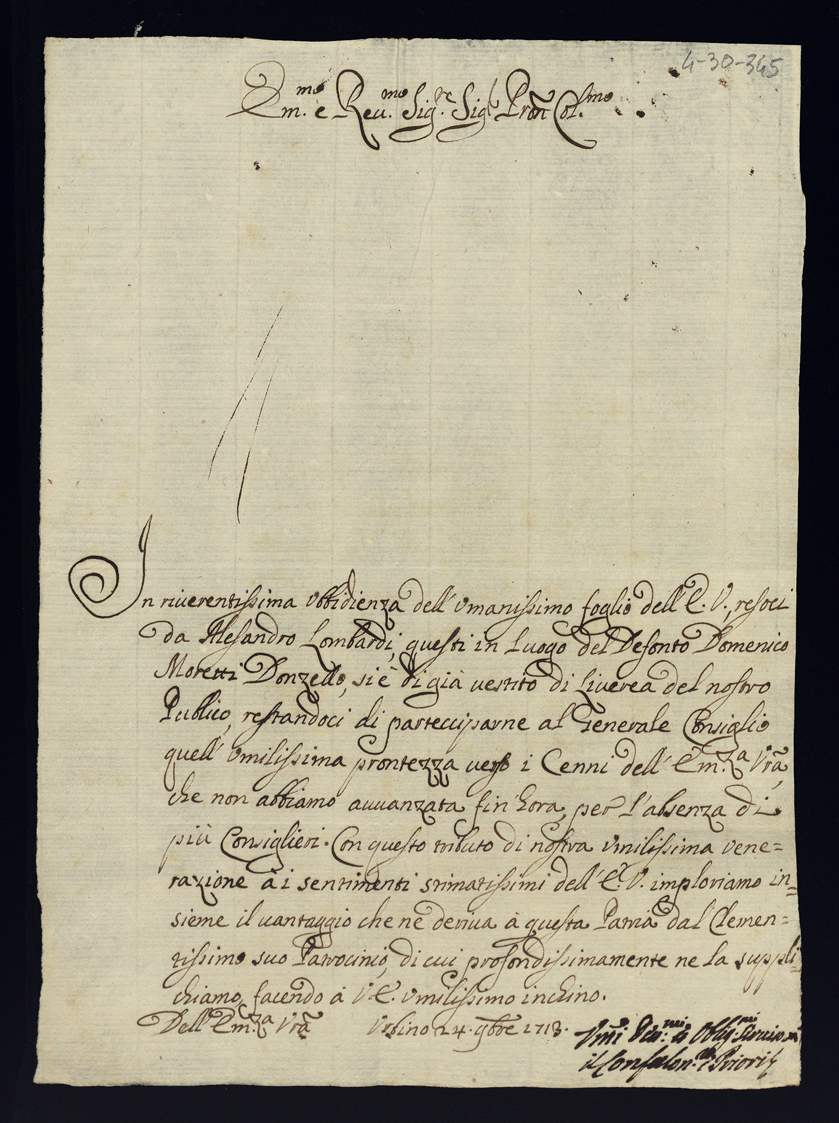 4-30-345
Em.mo e Reu.mo Sig.re Sig.r Pron Col.mo
In riuerentissima vbbidienza dell' vmanissimo foglio dell' E. V., resoci
da Alesandro Lombardi, questi in Luogo del Defonto Domenico
Moretti Donzello, si è di già vestito di Liuerea del nostro
Publico, restandoci di partecciparne al Generale Consiglio
quell' vmilissima prontezza verso i Cenni dell' Em.za Vra,
che non abbiamo auuanzata fin' hora, per l'absenza di
più Consiglieri. Con questo tributo di nostra vmilissima vene=
razione à i sentimenti stimatissimi dell' E. V. imploriamo in=
sieme il vantaggio che ne deriua à questa Patria dal Clemen=
tissimo suo Patrocinio, di cui profondissimamente ne la suppli=
chiamo, facendo à V. E. vmilissimo inchino.
Dell' Em.za Vra Vrbino 24. 9bre 1713.
Vmi Deu.mi et Obligmi
il Confalon.re e Priori